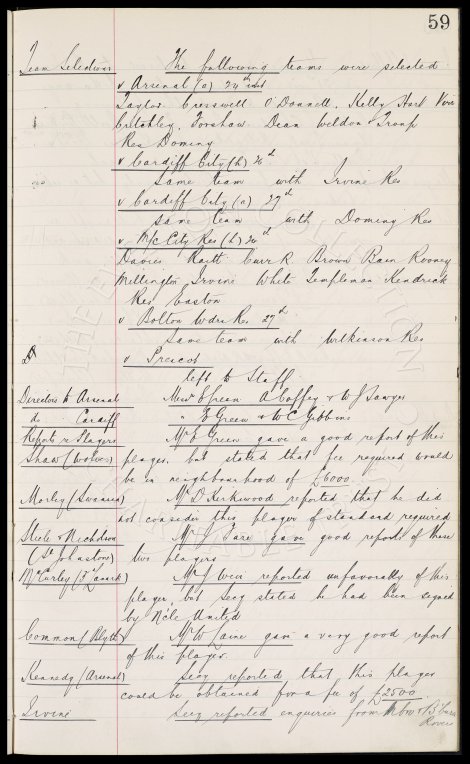 59
Team Selections The following teams were selected
v Arsenal (a) 24th inst
Taylor Cresswell O'Donnell. Kelly Hart Virr
Critchley. Forshaw. Dean Weldon Troup
Res Dominy
v Cardiff City (h) 26th
Same team with Irvine Res
v Cardiff City (a) 27th
same team with Dominy Res
v M/c City Res (h) 26th
Davies Raitt Curr R. Brown Bain Rooney
Millington Irvine White Templeman Kendrick
Res Easton
v Bolton Wdrs Res 27th
Same team with Wilkinson Res
v Prescot
left to Staff.
Directors to Arsenal Messrs E Green A Coffey & W J Sawyer
do Cardiff " E Green & W C Gibbins
Reports re Players Mr E Green gave a good report of this
Shaw (Wolves) player, but stated that fee required would
be in neighbourhood of £6000.
Morley (Swansea) Mr D Kirkwood reported that he did
not consider this player of standard required
Steele & Nicholson Mr J gave good report of these
(St Johnstone) two players
McCurley (Lanark) Mr J reported unfavorably of this
player, but Secy stated he had been signed
by N'cle United
Common (Blyth) Mr W gave a very good report
of this player.
Kennedy (Arsenal) Secy reported that this player
could be obtained for a fee of £2500
Irvine Secy reported enquiries from & B'burn
Rovers